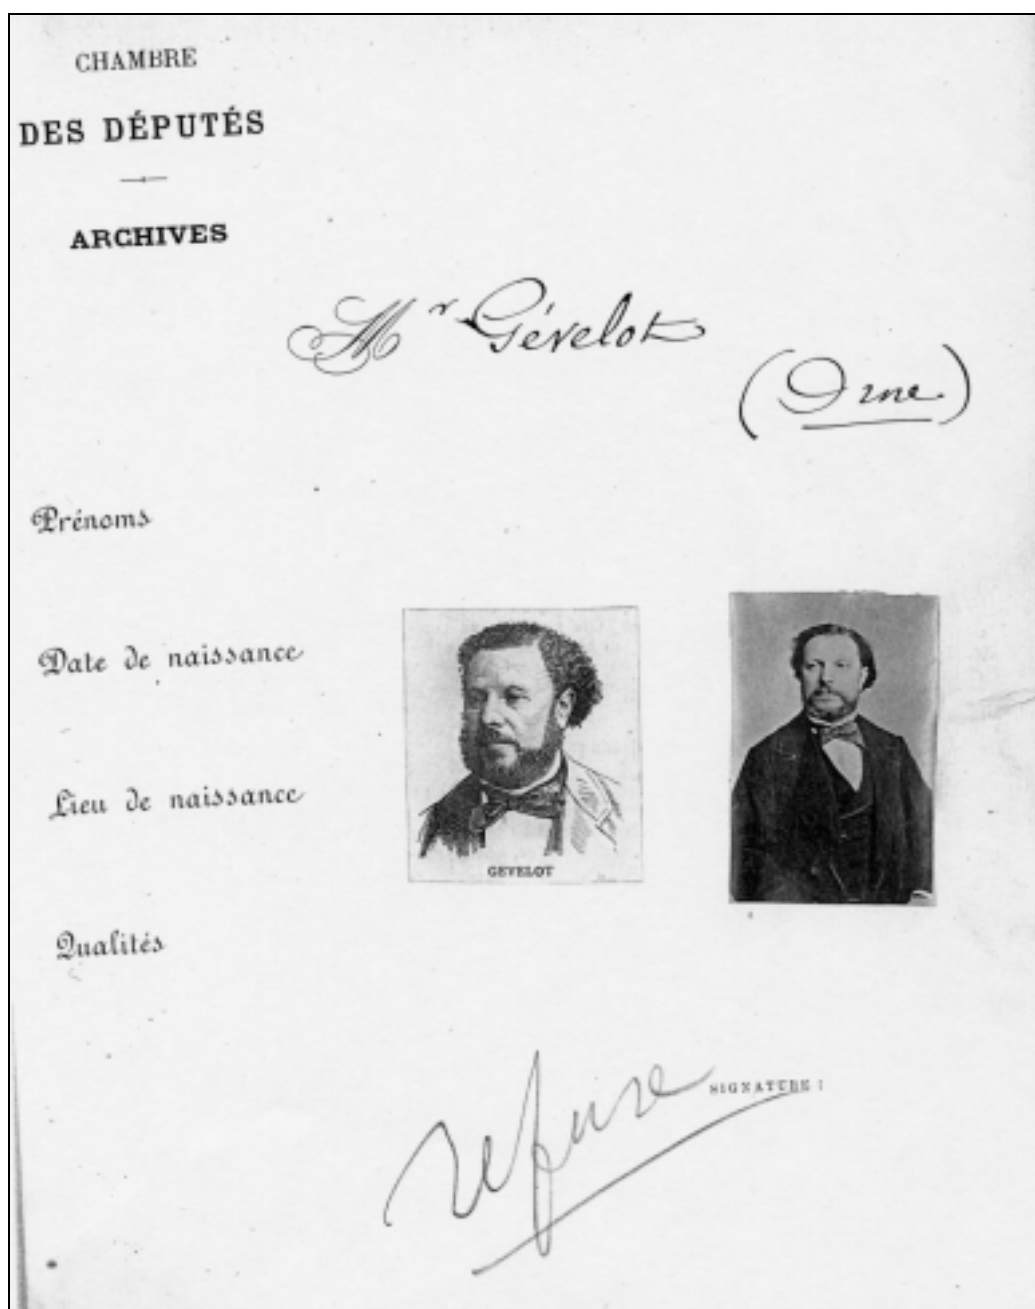 CHAMBRE
DES DÉPUTÉS
ARCHIVES
Mr Gévelot
(Orne)
Prénoms
Date de naissance
Lieu de naissance
GEVELOT
Qualités
SIGNATURE :
refuse